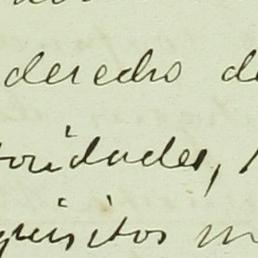 derecho de
toridades,
quisitos m